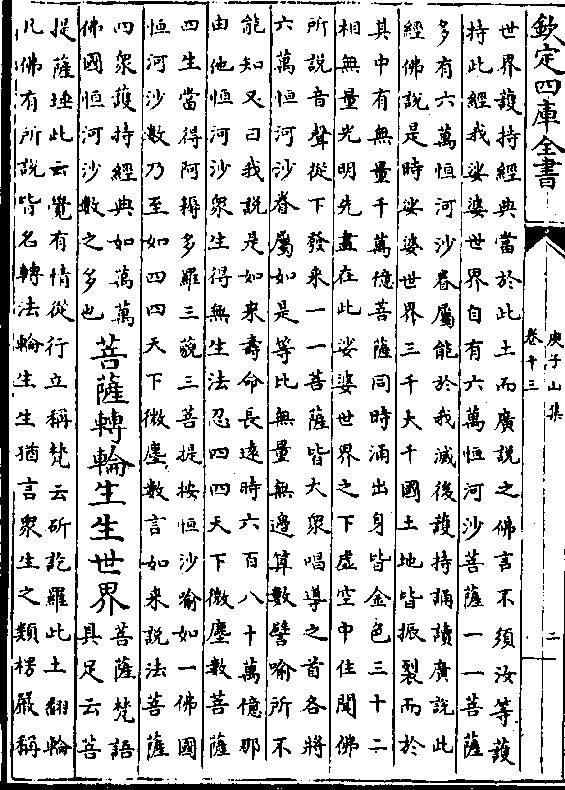 欽定四庫全書
庾子山集
卷十三
二
世界護持經典當於此土而廣說之佛言不須汝等護
持此經我娑婆世界自有六萬恒河沙菩薩一一菩薩
多有六萬恒河沙眷屬能於我滅後護持誦讀廣說此
經佛說是時娑婆世界三千大千國土地皆振裂而於
其中有無量千萬億菩薩同時涌出身皆金色三十二
相無量光明先盡在此娑婆世界之下虛空中住聞佛
所說音聲從下發來一一菩薩皆大衆唱導之首各將
六萬恒河沙眷屬如是等比無量無邊算數譬喻所不
能知又曰我說是如來壽命長逺時六百八十萬億那
由他恒河沙衆生得無生法忍四四天下微塵數菩薩
四生當得阿耨多羅三藐三菩提按恒沙喻如一佛國
恒河沙數乃至如四四天下微塵數言如來說法菩薩
四衆護持經典如萬萬
佛國恒河沙數之多也
菩薩轉輪生生世界
菩薩梵語
具足云菩
提薩埵此云覺有情從行立稱梵云斫訖羅此土翻輪
凡佛有所說皆名轉法輪生生猶言衆生之類楞嚴稱